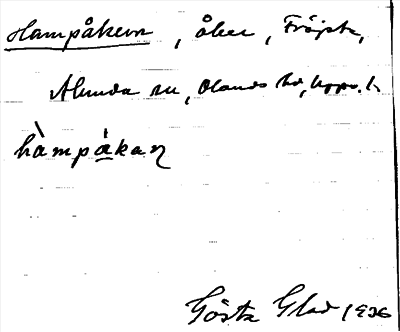 Hampåkern, åker, Fröjsta,
Alunda sn, Olands hd, Upps. l.
hàmpákaṇ
Gösta Glad 1936